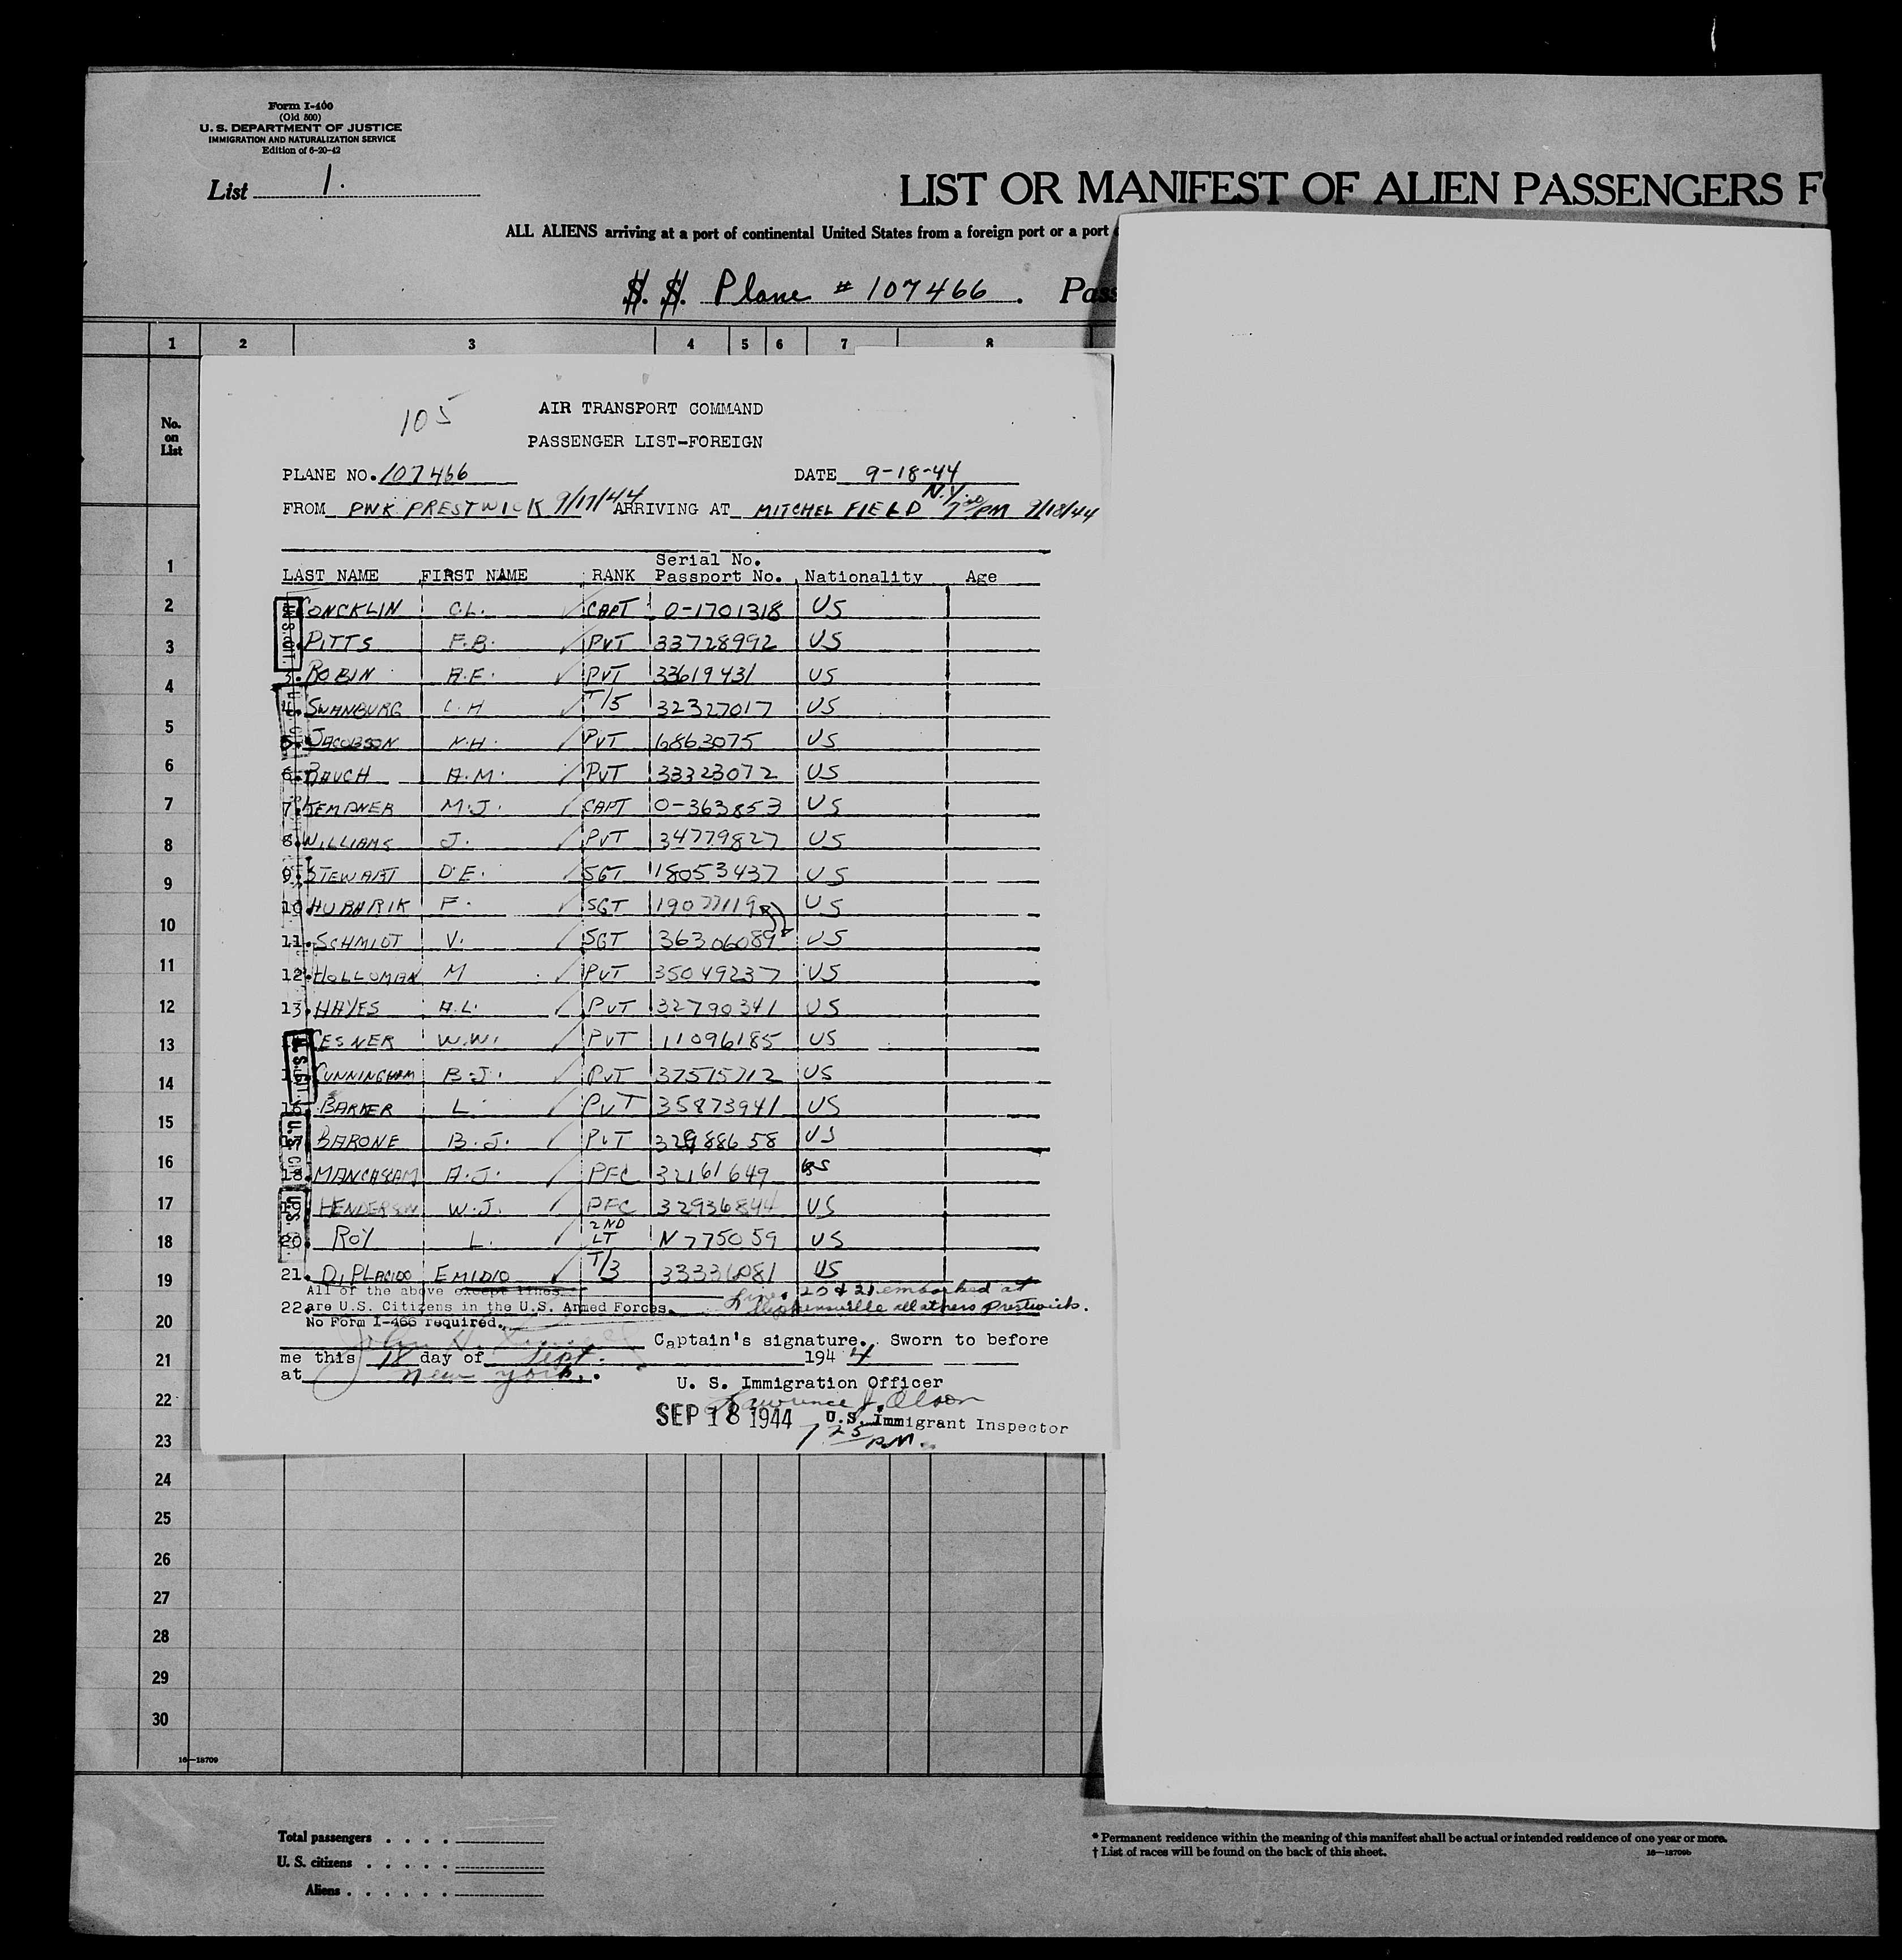 Form I-400
(Old 500)
U. S. DEPARTMENT OF JUSTICE
IMMIGRATION AND NATURALIZATION SERVICE
Edition of 6-20-42
List 1.
LIST OR MANIFEST OF ALIEN PASSENGERS F
ALL ALIENS arriving at a port of continental United States from a foreign port or a port
S. S. Plane # 107466. Pass
1 2 3 4 5 6 7 8
No. on List
105
AIR TRANSPORT COMMAND
PASSENGER LIST-FOREIGN
PLANE NO. 107466 DATE 9-18-44
FROM PWK PRESTWICK 9/17/44 ARRIVING AT MITCHEL FIELD N.Y. 7 PM 9/18/44
LAST NAME FIRST NAME RANK Serial No. Passport No. Nationality Age
CONCKLIN C.L. CAPT 0-1701318 US
PITTS F.B. PVT 33728992 US
3. ROBIN A.E. PVT 33619431 US
4. SWANBURG C.H T/5 32327017 US
5. JACOBSON N.H. PVT 6863075 US
6. BAUCH A.M. PVT 33323072 US
7. KEMPNER M.J. CAPT 0-363853 US
8. WILLIAMS J. PVT 34779827 US
9. STEWART D.E. SGT 18053437 US
10. HUBARIK F. SGT US
11. SCHMIDT V. SGT 36306089 US
12. HOLLOMAN M PVT 35049237 US
13. HAYES A.L. PVT 32790341 US
CESNER W.W. PVT 11096185 US
CUNNINGHAM B.J. PVT 37515712 US
16. BARKER L. PVT 35873941 US
17. BARONE B.J. PVT US
18. A.J. PFC 32161649 US
HENDERSON W.J. PFC 32936844 US
20. ROY L. 2ND LT N 775059 US
21. DiPLACIDO EMIDIO T/3 33336081 US
All of the above except lines
22. are U.S. Citizens in the U.S. Armed Forces.
No Form I-466 required.
Lines 20 & 21 embarked at
Stephensville all others Prestwick.
Captain's signature. Sworn to before
me this 18 day of Sept. 1944
at New York.
U. S. Immigration Officer
Lawrence J. Olson
SEP 18 1944 U.S. Immigrant Inspector
7 25 P.M.
1
2
3
4
5
6
7
8
9
10
11
12
13
14
15
16
17
18
19
20
21
22
23
24
25
26
27
28
29
30
16—18709
Total passengers
U. S. citizens
Aliens
* Permanent residence within the meaning of this manifest shall be actual or intended residence of one year or more.
† List of races will be found on the back of this sheet.